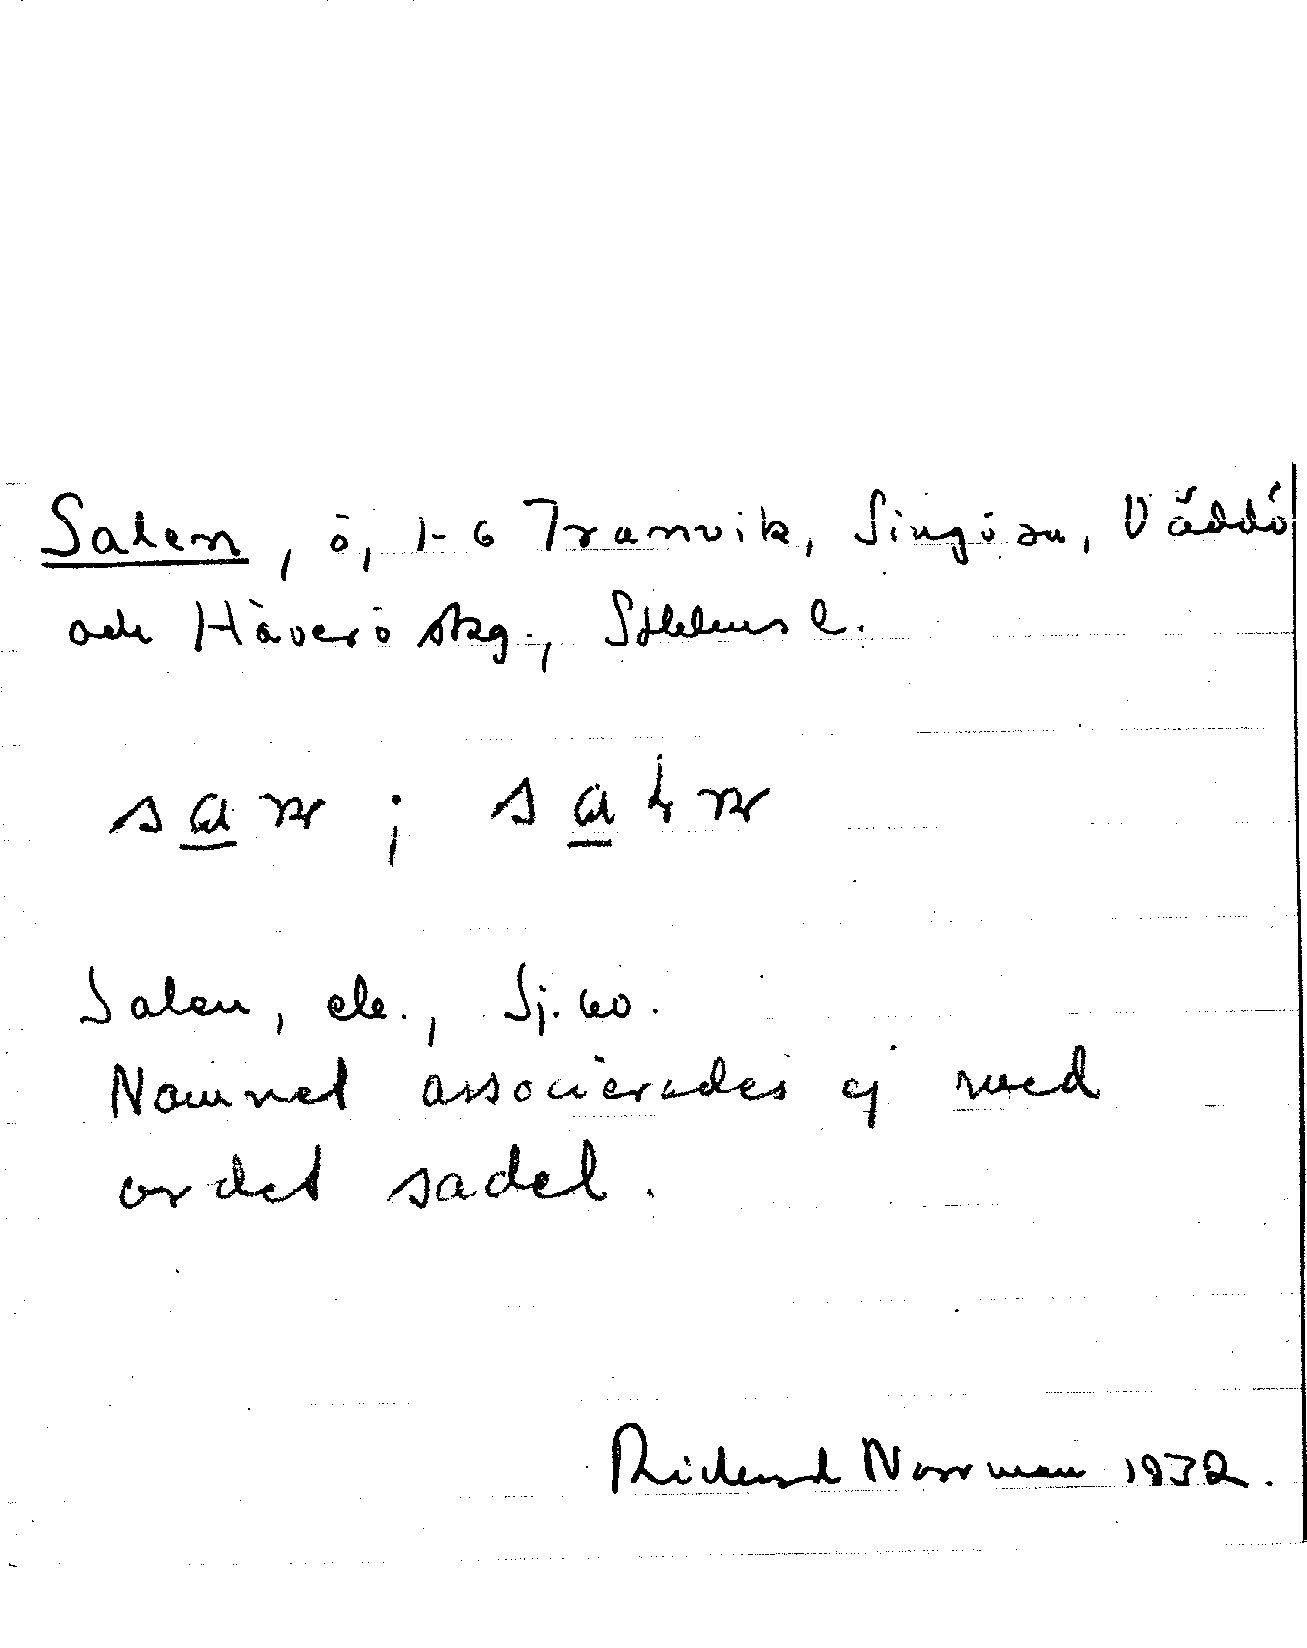 Salen, ö, 1-6 Tranvik, Singö sn, Väddö
och Häverö skg., Sthlms l.
Salen, ek., Sj.
Namnet associerades ej med
ordet sadel.
Rickard Norrman 1932.